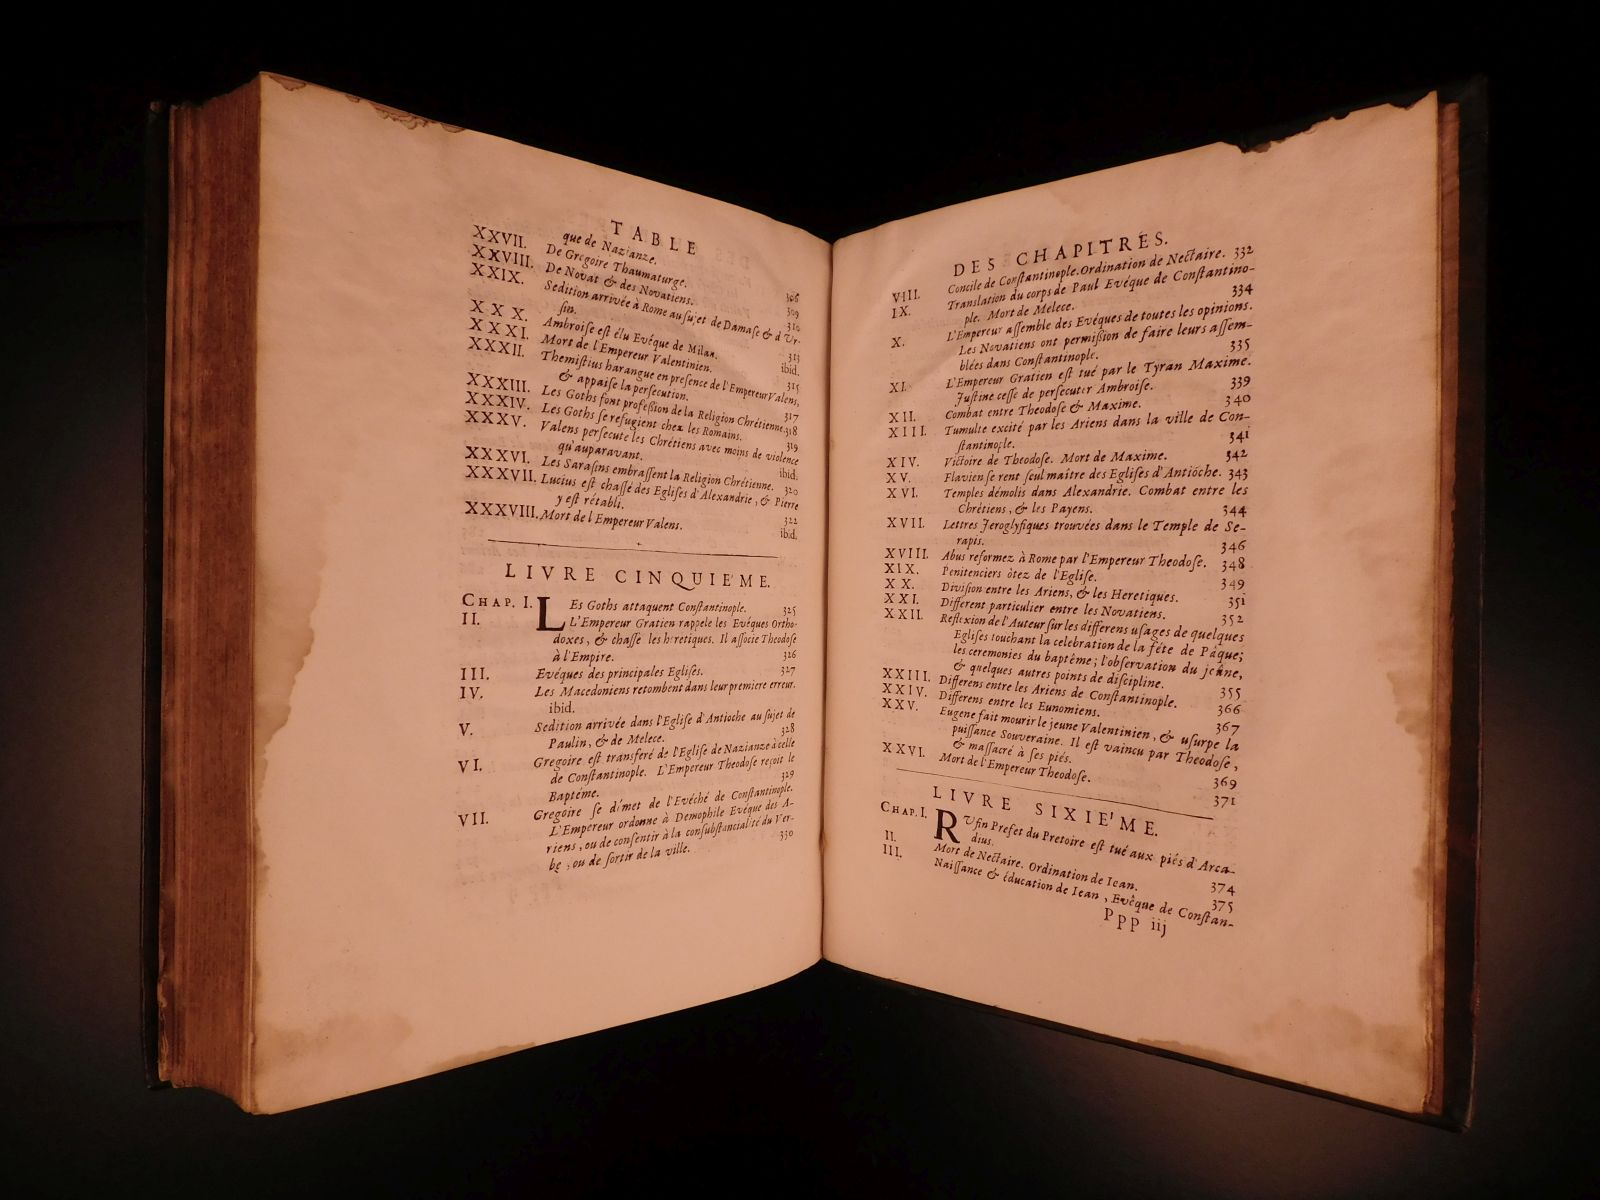 TABLE
que de Nazianze.
XXVII. De Gregoire Thaumaturge. 306
XXVIII. De Novat & des Novatiens. 309
XXIX. Sedition arrivée à Rome au sujet de Damase & d'Ur-
sin. 310
XXX. Ambroise est élu Evéque de Milan. 313
XXXI. Mort de l'Empereur Valentinien. ibid.
XXXII. Themistius harangue en presence de l'Empereur Valens, 315
& appaise la persecution. 317
XXXIII. Les Goths font profession de la Religion Chrétienne. 318
XXXIV. Les Goths se refugient chez les Romains. 319
XXXV. Valens persecute les Chrétiens avec moins de violence
qu'auparavant. ibid.
XXXVI. Les Sarasins embrassent la Religion Chrétienne. 320
XXXVII. Lucius est chassé des Eglises d'Alexandrie, & Pierre
y est rétabli. 322
XXXVIII. Mort de l'Empereur Valens. ibid.
LIVRE CINQUIE'ME.
CHAP. I. LEs Goths attaquent Constantinople. 325
II. L'Empereur Gratien rappele les Evéques Ortho-
doxes, & chasse les heretiques. Il associe Theodose
à l'Empire. 326
III. Evéques des principales Eglises. 327
IV. Les Macedoniens retombent dans leur premiere erreur.
ibid.
V. Sedition arrivée dans l'Eglise d'Antioche au sujet de
Paulin, & de Melece. 328
VI. Gregoire est transferé de l'Eglise de Nazianze à celle
de Constantinople. L'Empereur Theodose reçoit le
Baptéme. 329
VII. Gregoire se démet de l'Evéché de Constantinople.
L'Empereur ordonne à Demophile Evéque des A-
riens, ou de consentir à la consubstancialité du Ver-
be, ou de sortir de la ville. 330
DES CHAPITRES.
VIII. Concile de Constantinople. Ordination de Nectaire. 332
IX. Translation du corps de Paul Evéque de Constantino-
ple. Mort de Melece. 334
X. L'Empereur assemble des Evéques de toutes les opinions.
Les Novatiens ont permission de faire leurs assem-
blées dans Constantinople. 335
XI. L'Empereur Gratien est tué par le Tyran Maxime.
Justine cesse de persecuter Ambroise. 339
XII. Combat entre Theodose & Maxime. 340
XIII. Tumulte excité par les Ariens dans la ville de Con-
stantinople. 341
XIV. Victoire de Theodose. Mort de Maxime. 342
XV. Flavien se rent seul maître des Eglises d'Antioche. 343
XVI. Temples démolis dans Alexandrie. Combat entre les
Chrétiens, & les Payens. 344
XVII. Lettres Jeroglyfiques trouvées dans le Temple de Se-
rapis. 346
XVIII. Abus reformez à Rome par l'Empereur Theodose. 348
XIX. Penitenciers ôtez de l'Eglise. 349
XX. Division entre les Ariens, & les Heretiques. 351
XXI. Different particulier entre les Novatiens. 352
XXII. Reflexion de l'Auteur sur les differens usages de quelques
Eglises touchant la celebration de la féte de Pâque;
les ceremonies du baptême; l'observation du jeûne,
& quelques autres points de discipline. 355
XXIII. Differens entre les Ariens de Constantinople. 366
XXIV. Differens entre les Eunomiens. 367
XXV. Eugene fait mourir le jeune Valentinien, & usurpe la
puissance Souveraine. Il est vaincu par Theodose,
& massacré à ses piés. 369
XXVI. Mort de l'Empereur Theodose. 371
LIVRE SIXIE'ME.
CHAP. I. RUfin Prefet du Pretoire est tué aux piés d'Arca-
dius. 374
II. Mort de Nectaire. Ordination de Iean. 375
III. Naissance & éducation de Iean, Evêque de Constan-
Ppp iij